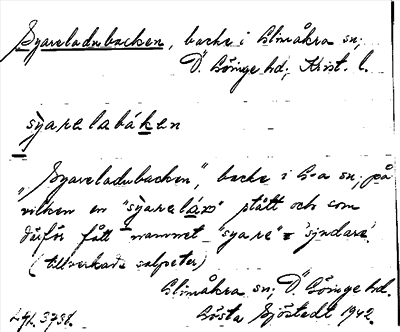 Syareladubacken, backe i Glimåkra sn;
Ö. Göinge hd; Krist. l.
syarelabáken
„Syareladubacken", backe i G-a sn; på
vilken en "syareláx" stått och som
därför fått namnet. "syare" = sjudare.
(tillverkade salpeter)
Glimåkra sn; Ö Göinge hd.
Gösta Sjöstedt 1942.